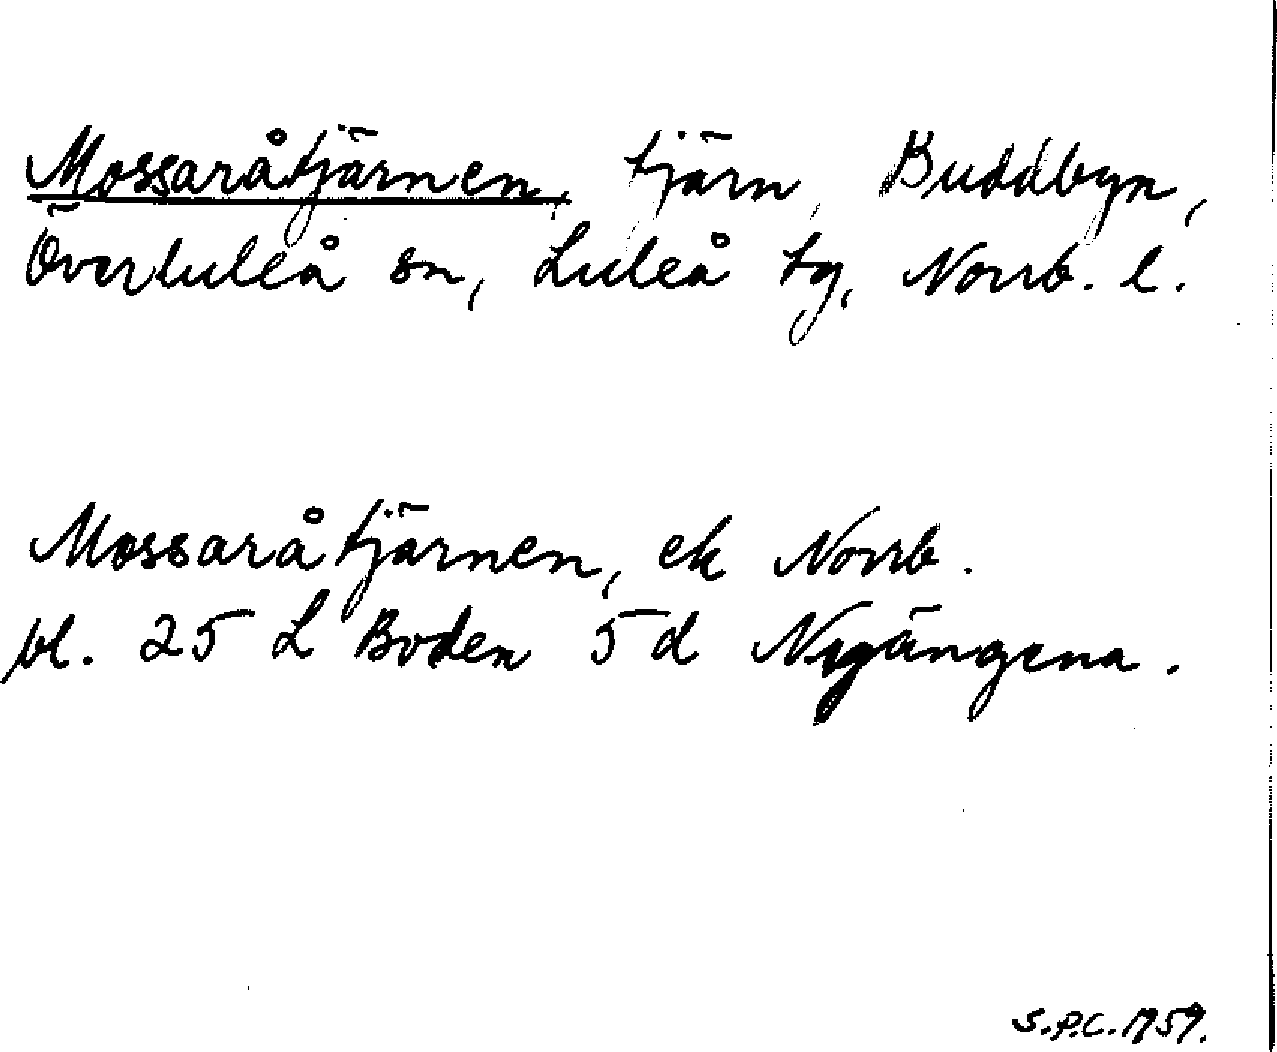 Mossaråtjärnen, tjärn, Buddbyn,
Överluleå sn, Luleå tg, Norrb. l.
Mossaråtjärnen, ek Norrb.
bl. 25 L Boden 5 d Nygängena.
S.P.C. 1959.